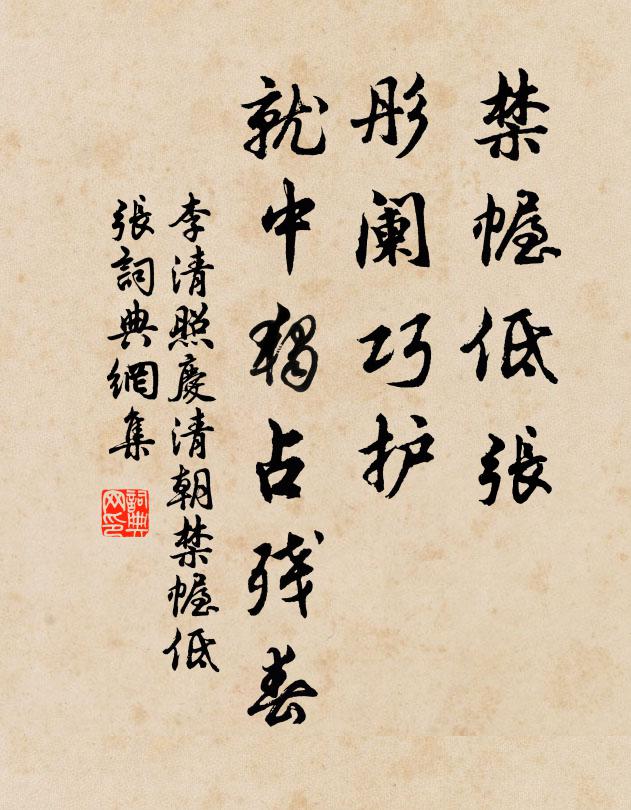 禁幄低張
彤阑巧护
就中独占残春
李清照慶清朝禁幄低
張詞典網集
詞典
网印